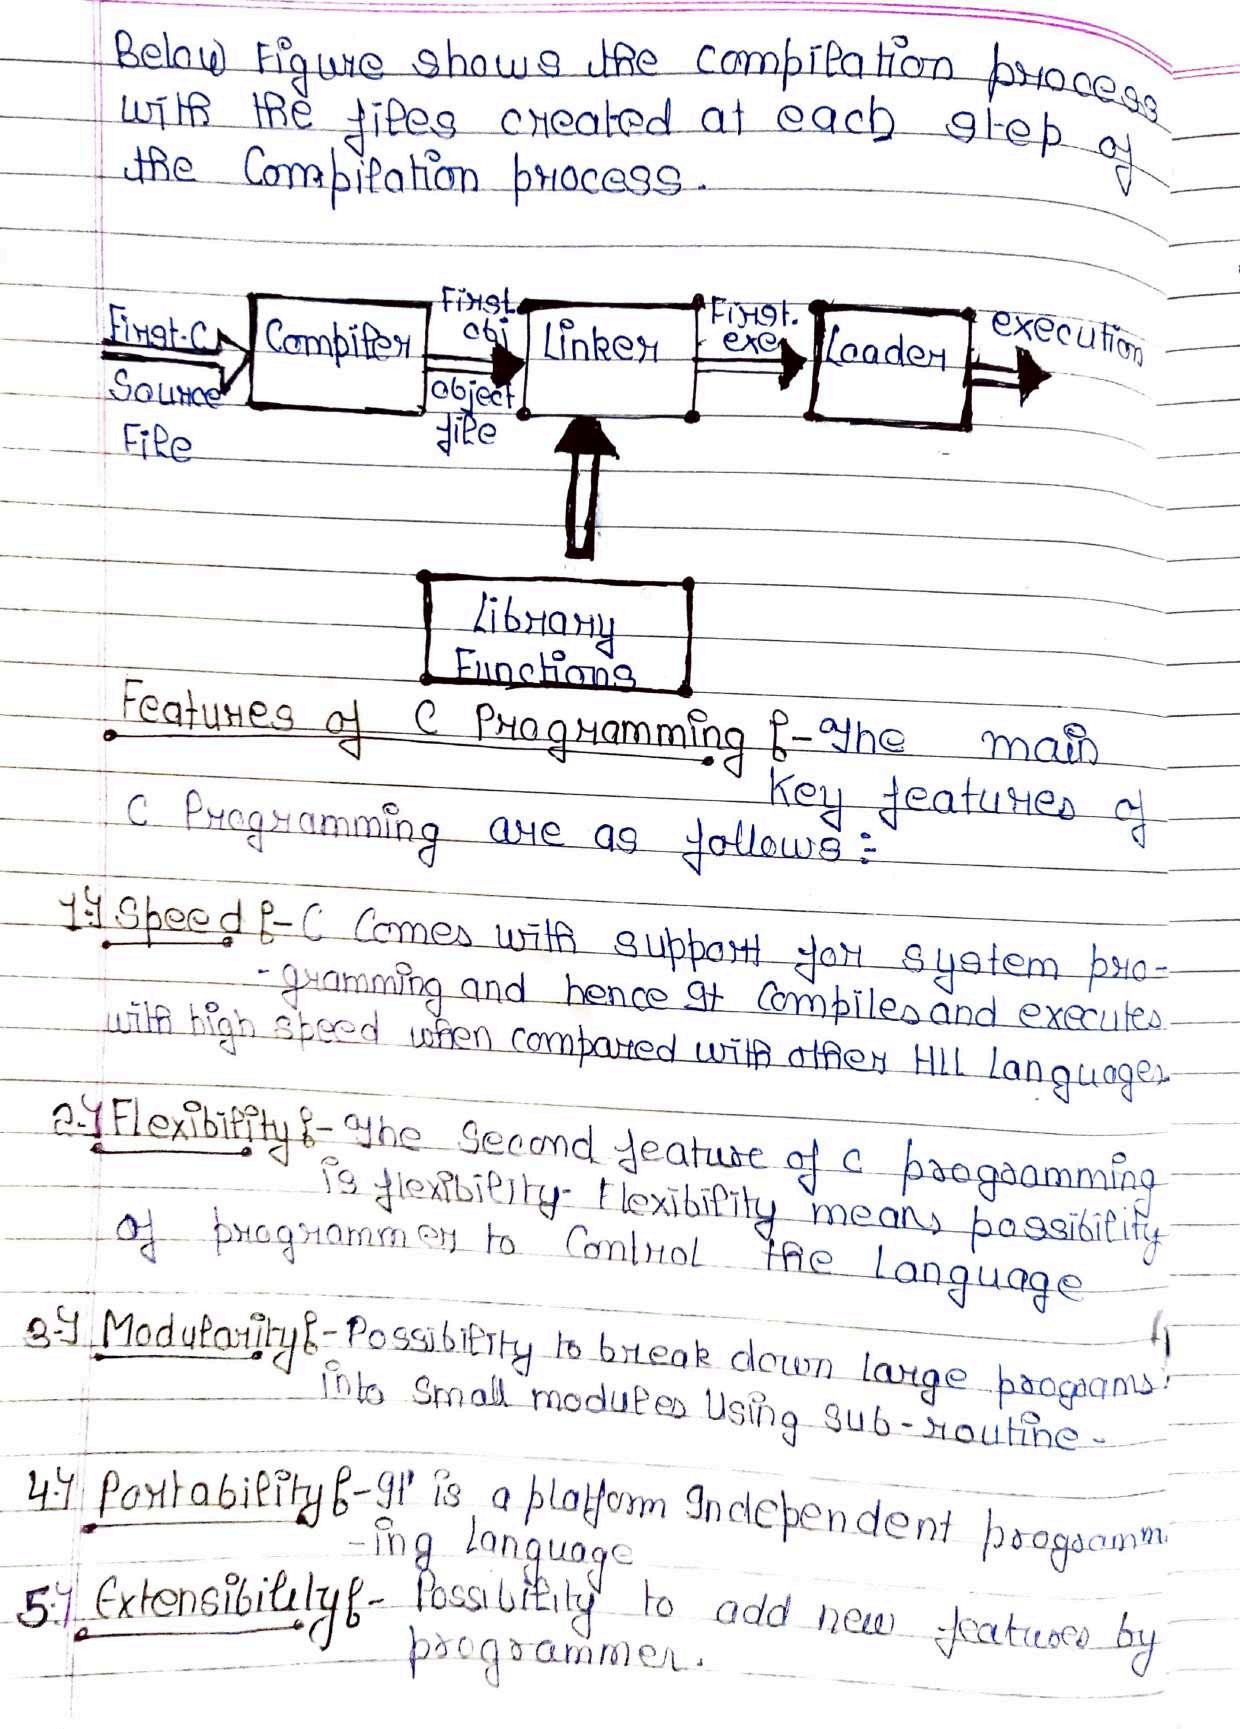 Below Figure shows the compilation process
with the files created at each step of
the Compilation process.
First.C
Source
File
Compiler
First.
obj
object
file
Linker
First.
exe
Loader
execution
Library
Functions
Features of C Programming :- The main
Key features of
C Programming are as follows :-
1.) Speed :- C Comes with support for system pro-
-gramming and hence It Compiles and executes
with high speed when compared with other HLL Languages
2.) Flexibility :- The Second feature of C programming
is flexibility. Flexibility means possibility
of programmer to Control the Language
3.) Modularity :- Possibility to break down large programs
into Small modules Using sub-routine.
4.) Portability :- It is a platform Independent programm
-ing Language
5.) Extensibility :- Possibility to add new features by
programmer.